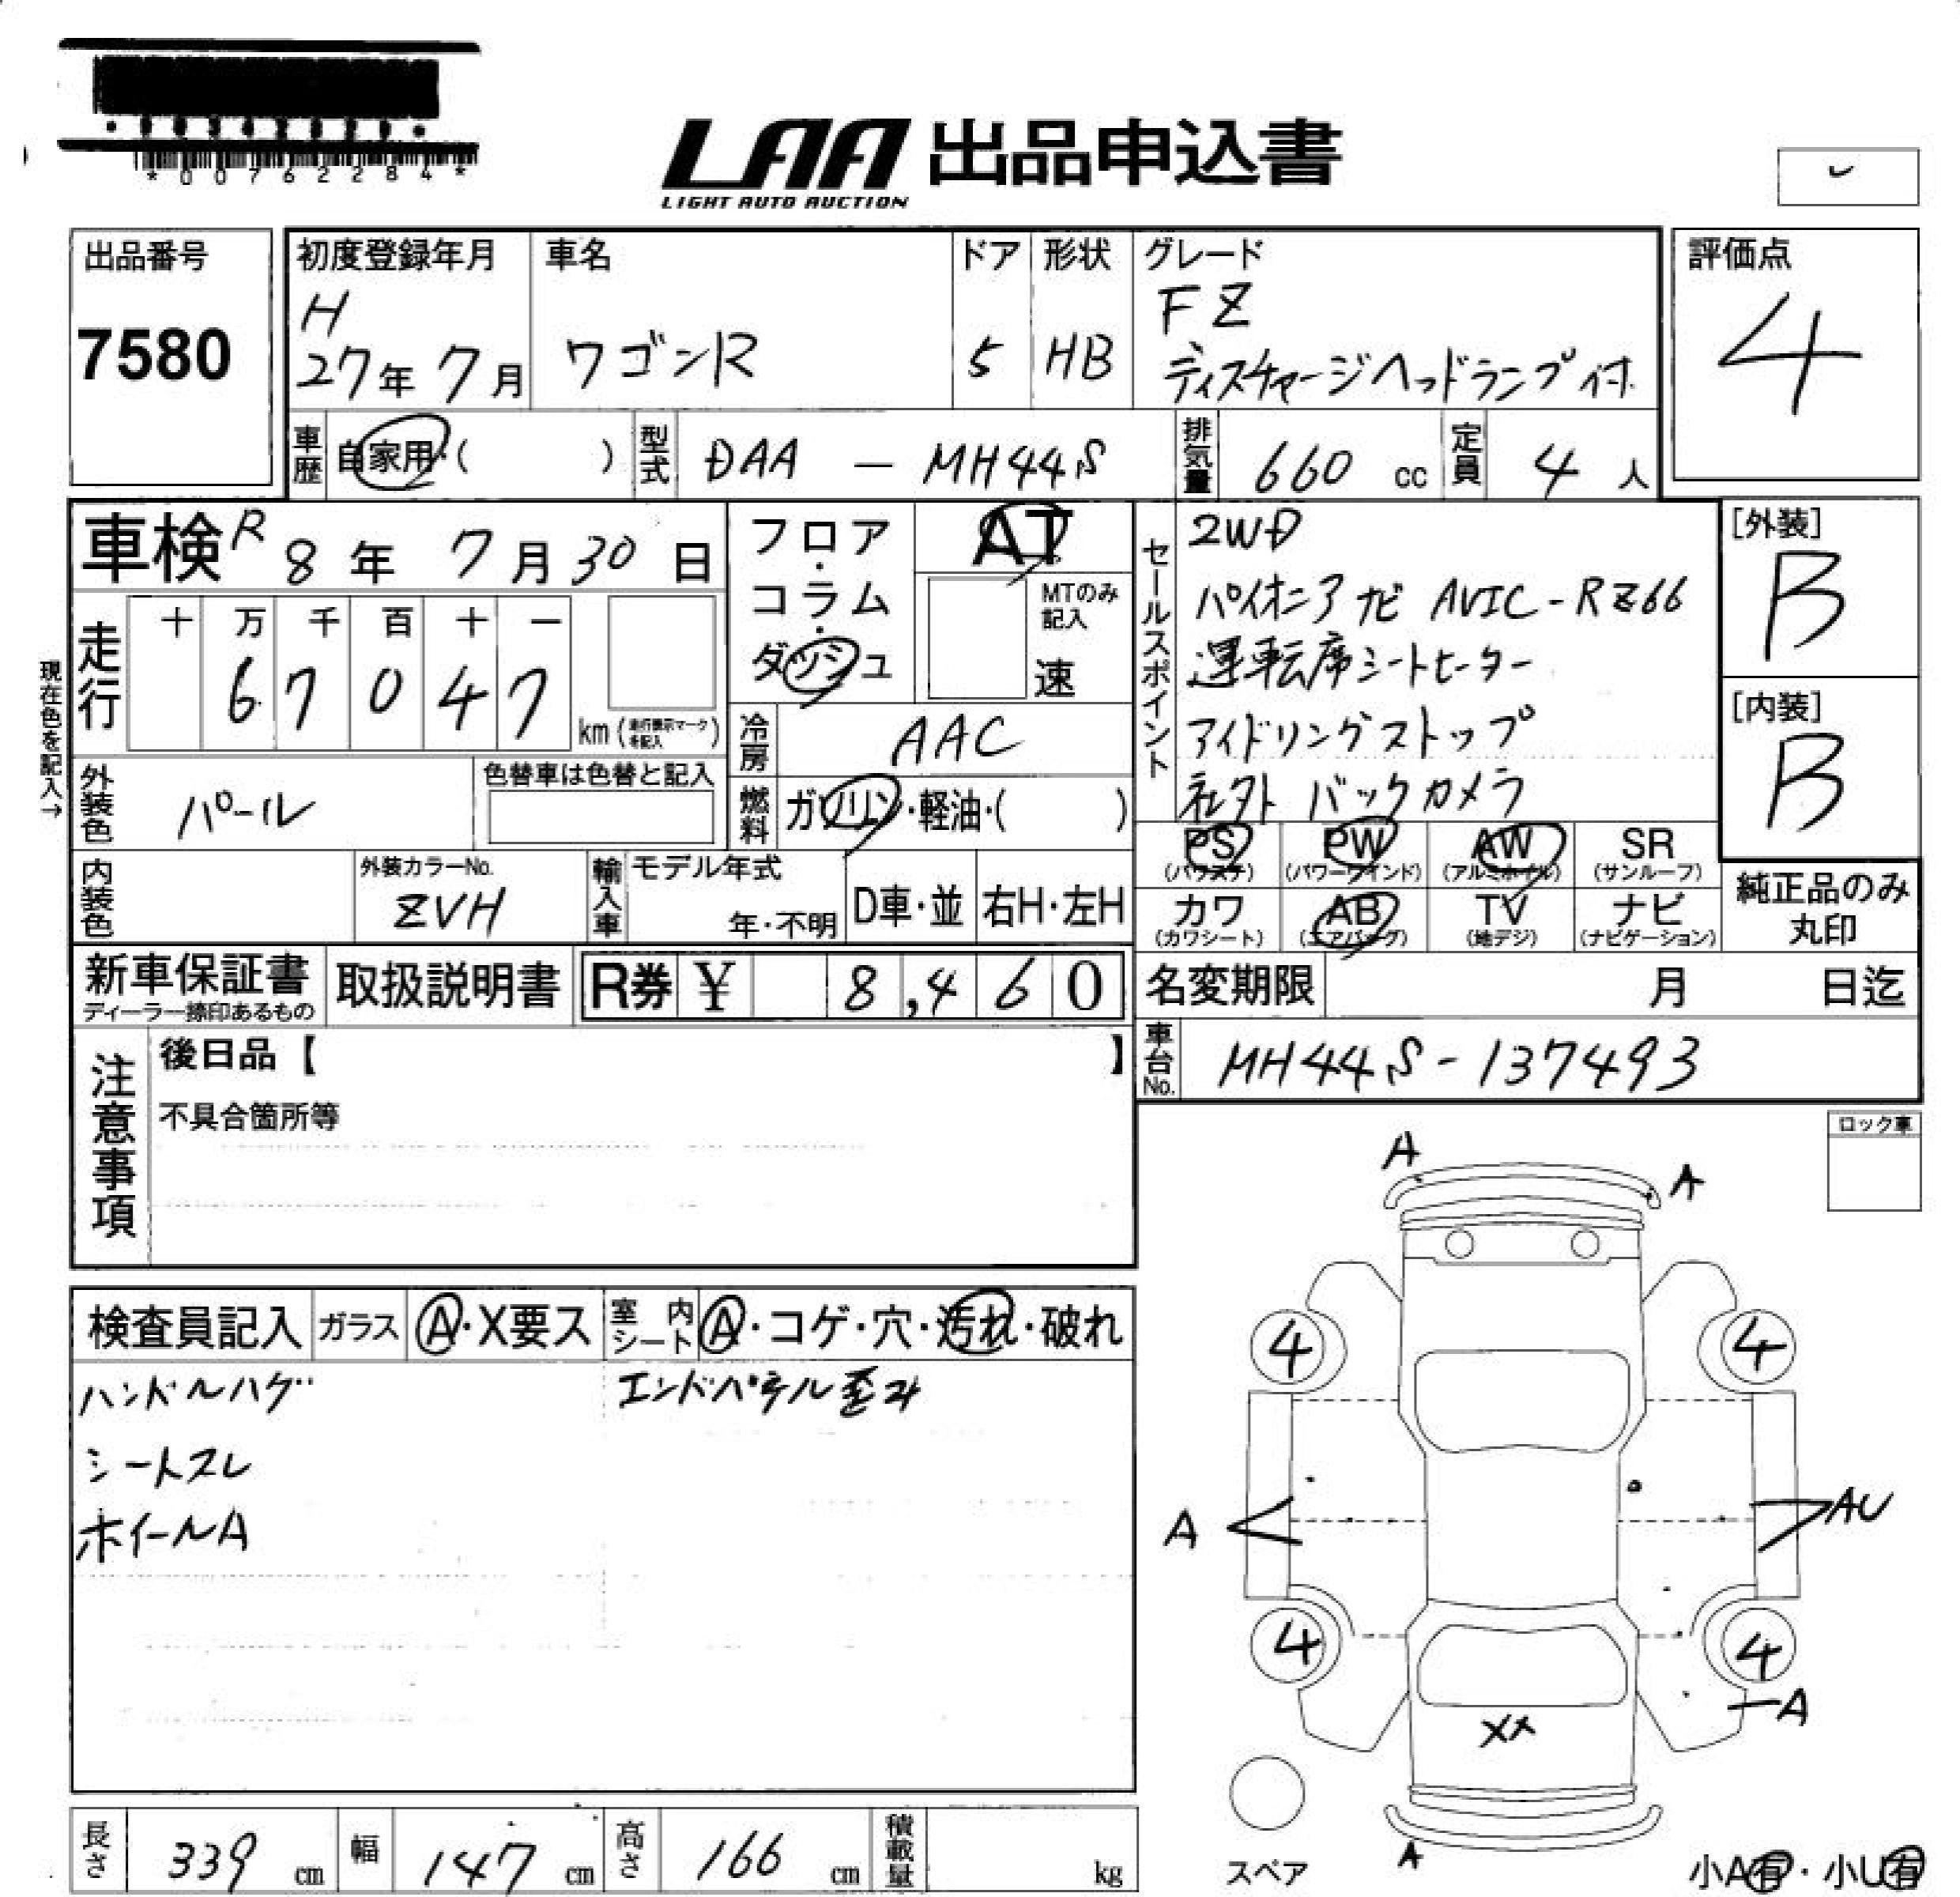 *00762284*
LAA 出品申込書
LIGHT AUTO AUCTION
出品番号
7580
初度登録年月
H
27年 7月
車名
ワゴンR
ドア
5
形状
HB
グレード
FZ
ディスチャージヘッドランプ付
評価点
4
車歴 自家用・( )
型式 DAA - MH44S
排気量 660 cc
定員 4 人
車検 R 8年 7月 30日
フロア・コラム・ダッシュ
AT
MTのみ記入
速
セールスポイント
2WD
パイオニアナビ AVIC-RZ66
運転席シートヒーター
アイドリングストップ
社外 バックカメラ
[外装]
B
[内装]
B
現在色を記入→
走行
十 万 千 百 十 一
6 7 0 4 7
km (走行表示マークを記入)
冷房 AAC
外装色 パール
色替車は色替と記入
燃料 ガソリン・軽油・( )
内装色
外装カラーNo.
ZVH
輸入車 モデル年式
年・不明
D車・並
右H・左H
PS (パワステ)
PW (パワーウインド)
AW (アルミホイル)
SR (サンルーフ)
カワ (カワシート)
AB (エアバーグ)
TV (地デジ)
ナビ (ナビゲーション)
純正品のみ
丸印
新車保証書
ディーラー捺印あるもの
取扱説明書
R券 ¥ 8,460
名変期限 月 日迄
車台No. MH44S-137493
注意事項
後日品【 】
不具合箇所等
ロック車
検査員記入
ガラス Ⓐ・X要ス
室内シート Ⓐ・コゲ・穴・汚れ・破れ
ハンドルハゲ
エンドパネル歪み
シートスレ
ホイールA
A
A
4
4
A
AU
4
4
A
XX
A
スペア
小A有・小U有
長さ 339 cm
幅 147 cm
高さ 166 cm
積載量 kg